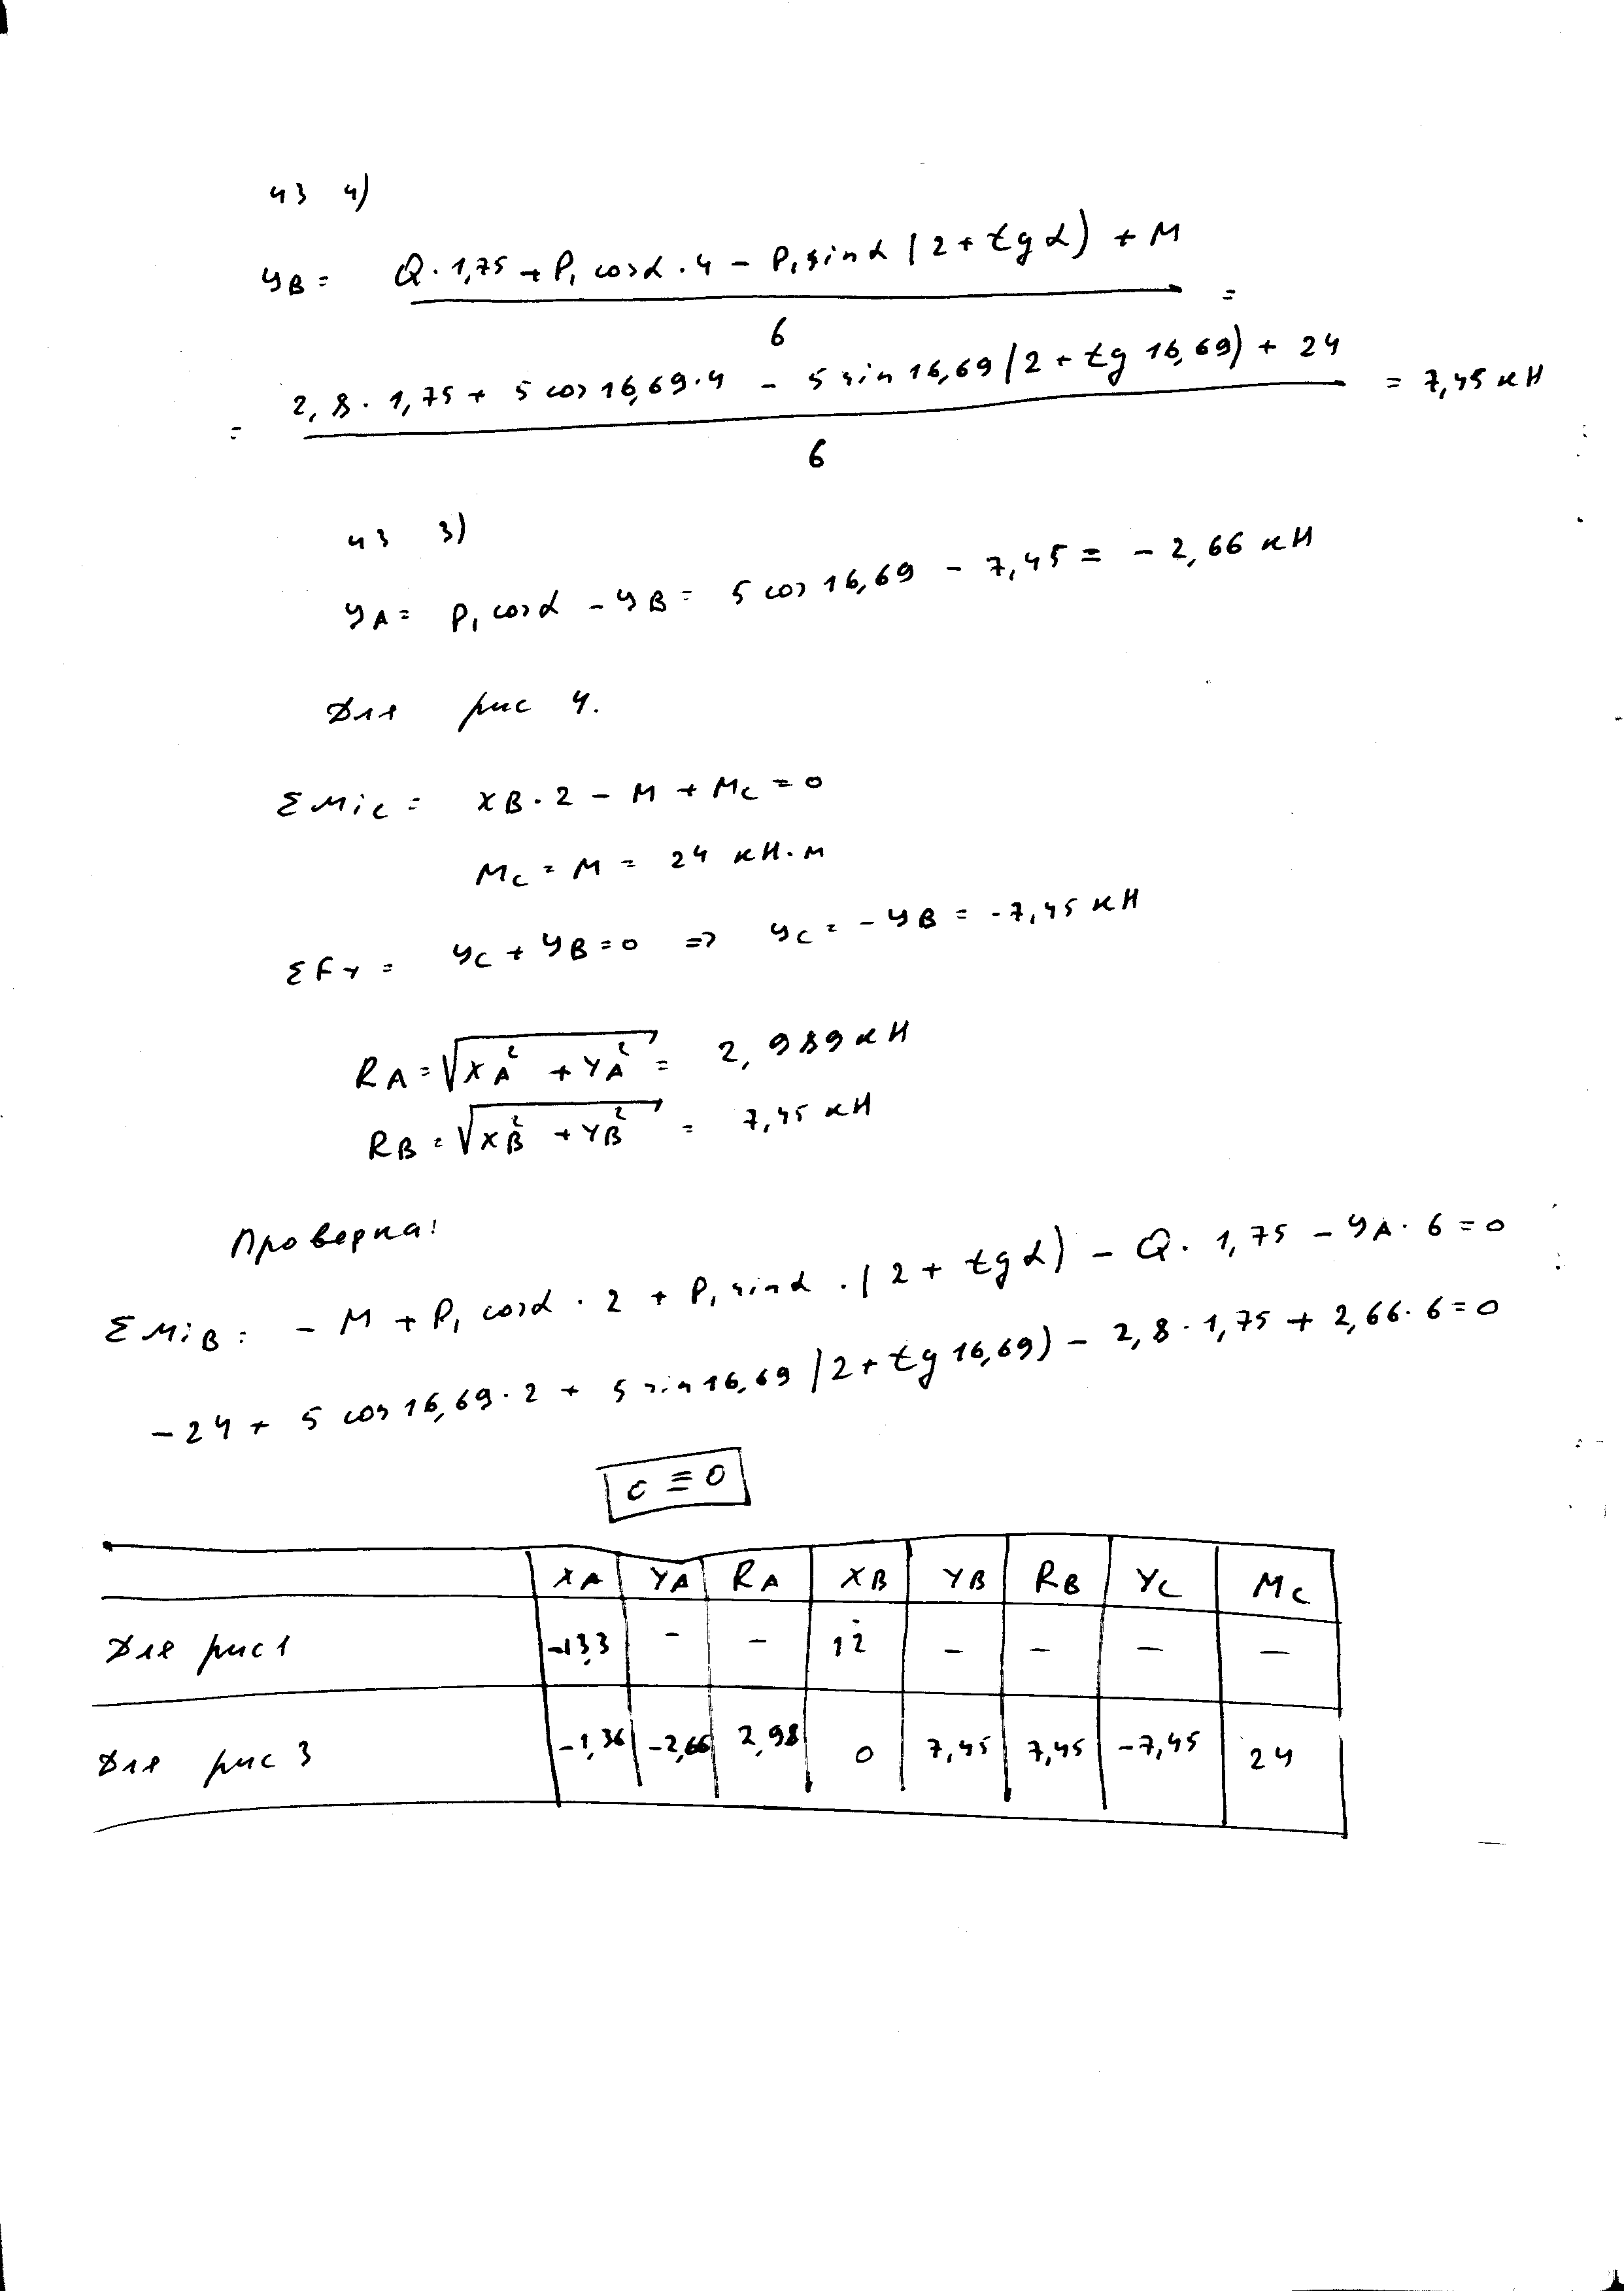 из 4)
yB = Q · 1,75 + P₁ cosα · 4 − P₁ sinα (2 + tgα) + M =
6
= 2,8 · 1,75 + 5 cos 16,69 · 4 − 5 sin 16,69 (2 + tg 16,69) + 24 = 7,45 кН
6
из 3)
yA = P₁ cosα − yB = 5 cos 16,69 − 7,45 = −2,66 кН
Для рис 4.
ΣMic = XB · 2 − M + Mc = 0
Mc = M = 24 кН·м
ΣFy = yc + yB = 0 => yc = −yB = −7,45 кН
RA = √(XA² + YA²) = 2,989 кН
RB = √(XB² + YB²) = 7,45 кН
Проверка!
ΣMiB = − M + P₁ cosα · 2 + P₁ sinα · (2 + tgα) − Q · 1,75 − yA · 6 = 0
−24 + 5 cos 16,69 · 2 + 5 sin 16,69 (2 + tg 16,69) − 2,8 · 1,75 + 2,66 · 6 = 0
0 ≡ 0
XA YA RA XB YB RB Yc Mc
Для рис 1 −13,3 − − 12 − − − −
Для рис 3 −1,36 −2,66 2,98 0 7,45 7,45 −7,45 24